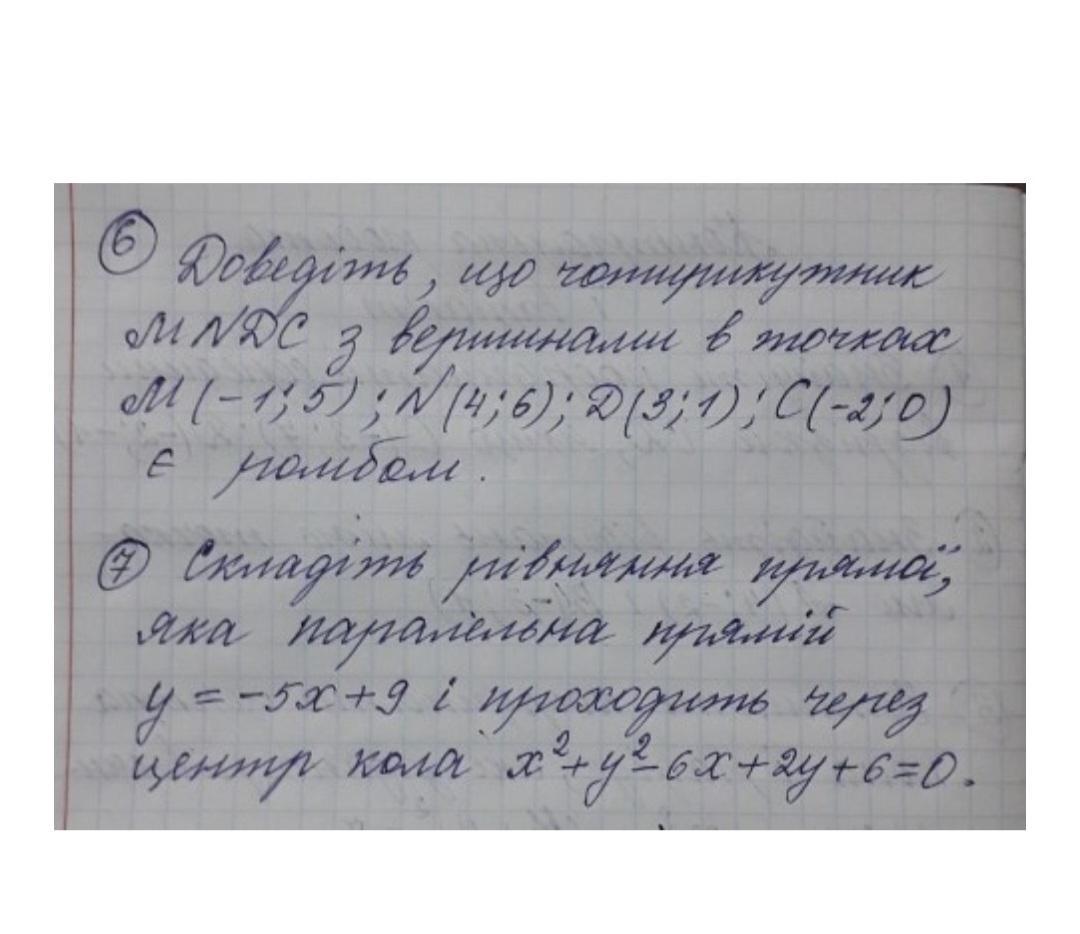 6 Доведіть, що чотирикутник
MNDC з вершинами в точках
M(-1;5); N(4;6); D(3;1); C(-2;0)
є ромбом.
7 Складіть рівняння прямої,
яка паралельна прямій
y = -5x+9 і проходить через
центр кола x²+y²-6x+2y+6=0.